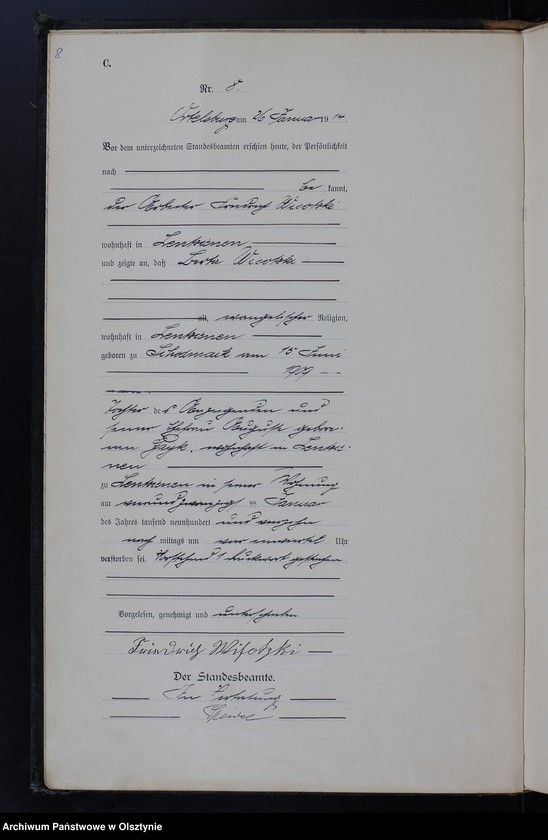 8
C.
Nr. 8.
Ortelsburg am 26 Januar 1914.
Vor dem unterzeichneten Standesbeamten erschien heute, der Persönlichkeit
nach
be kannt,
der Arbeiter Friedrich
wohnhaft in Lenksenen
und zeigte an, daß Berta
alt, evangelischer Religion,
wohnhaft in Lenksenen
geboren zu am 15 Juni
1909
Tochter des Anzeigenden und
seiner Ehefrau Auguste gebore-
nen wohnhaft in Lenkse-
nen
zu Lenksenen in seiner Wohnung
am vierundzwanzig ten Januar
des Jahres tausend neunhundert und vierzehn
nach mittags um Uhr
verstorben sei. Vorstehend 1 Druckwort gestrichen
Vorgelesen, genehmigt und unterschrieben
Friedrich Wisotzki
Der Standesbeamte.
In Vertretung
Archiwum Państwowe w Olsztynie